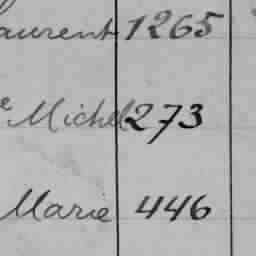 aurent 1265
e Michel 273
Marie 446